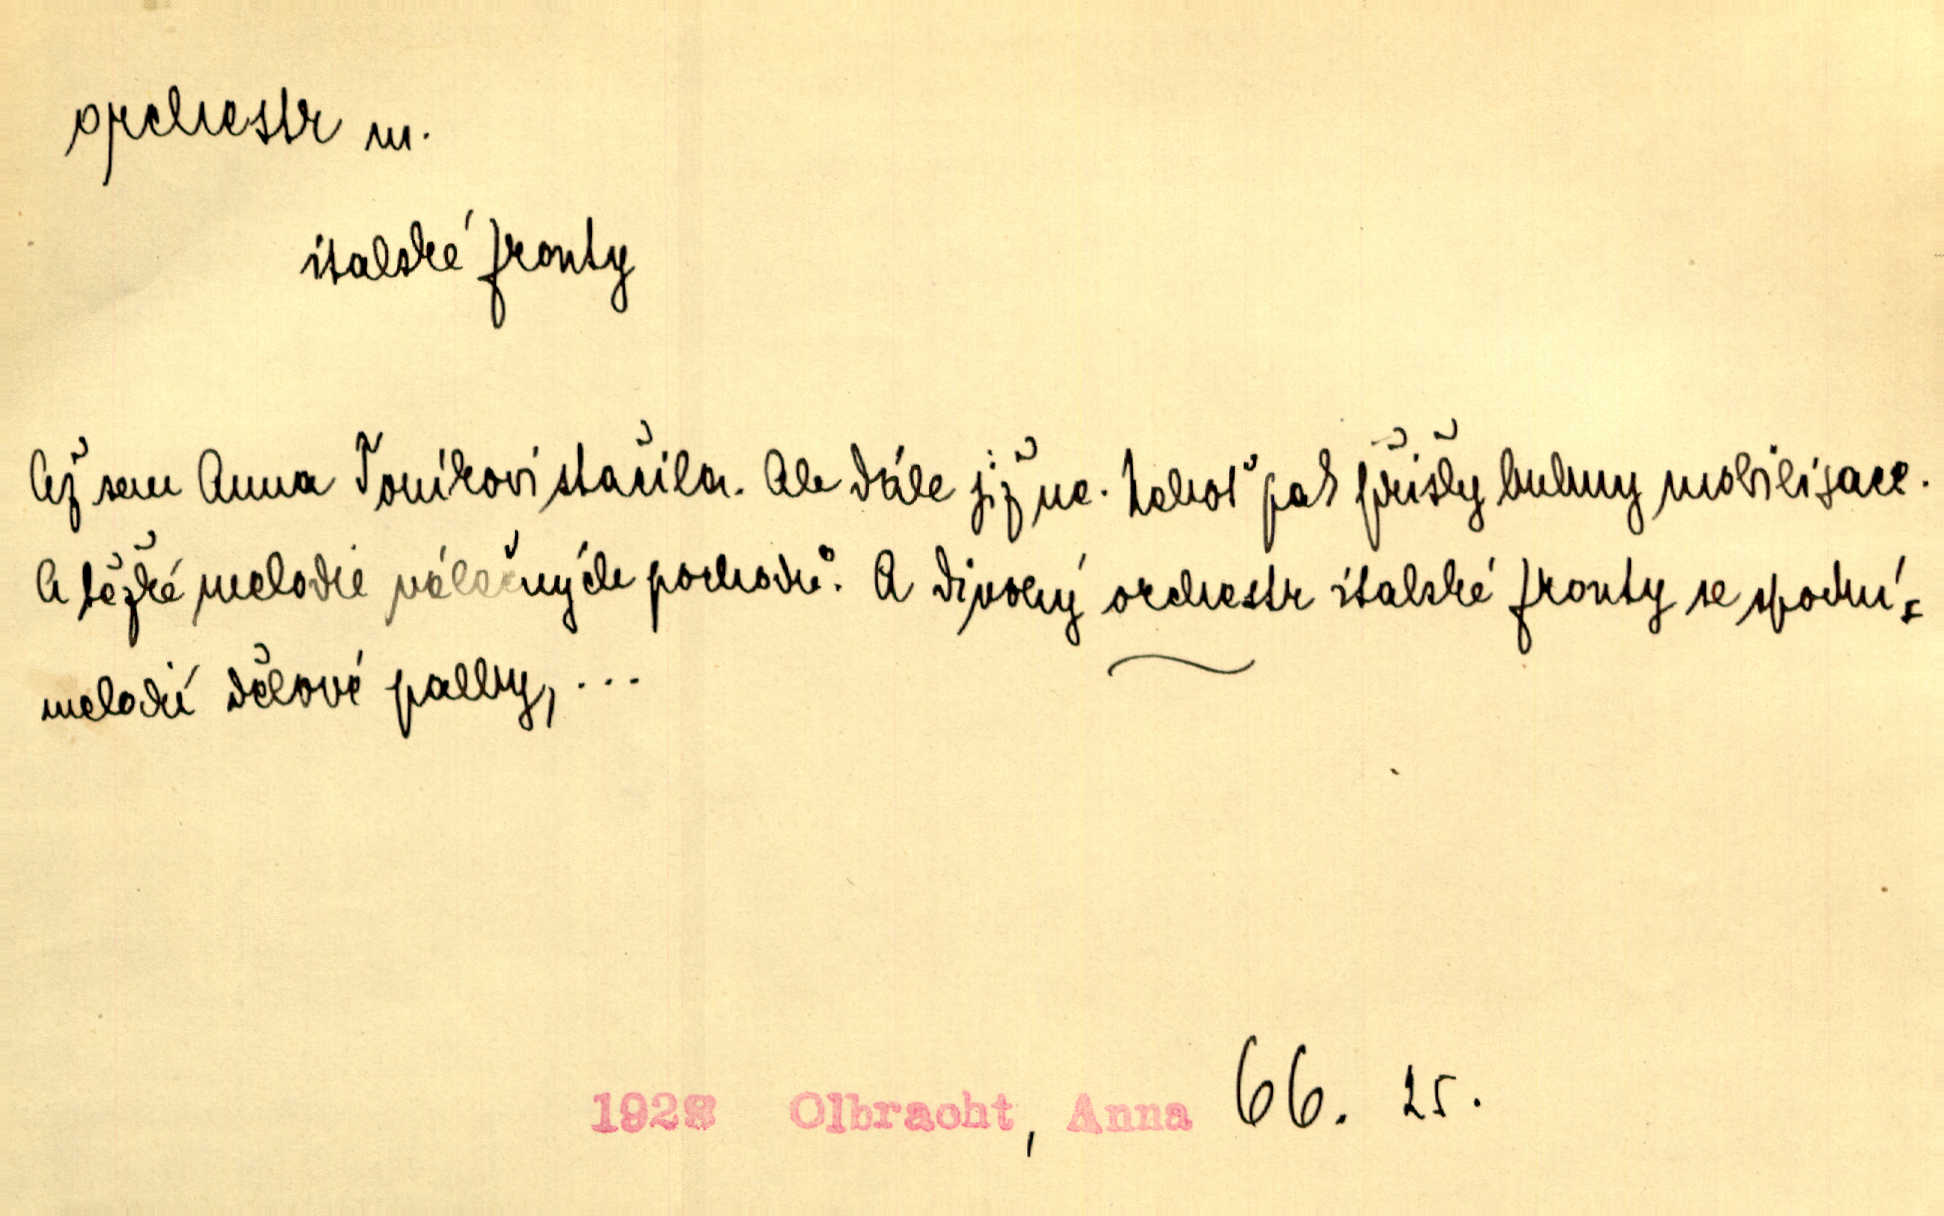 orchestr m.
italské fronty
Až sem Anna Toníkovi stačila. Ale dále již ne. Neboť pak přišly bubny mobilisace.
A těžké melodie válečných pochodů. A divoký orchestr italské fronty se spodní
melodií dělové palby, ...
1928 Olbracht, Anna 66. 25.